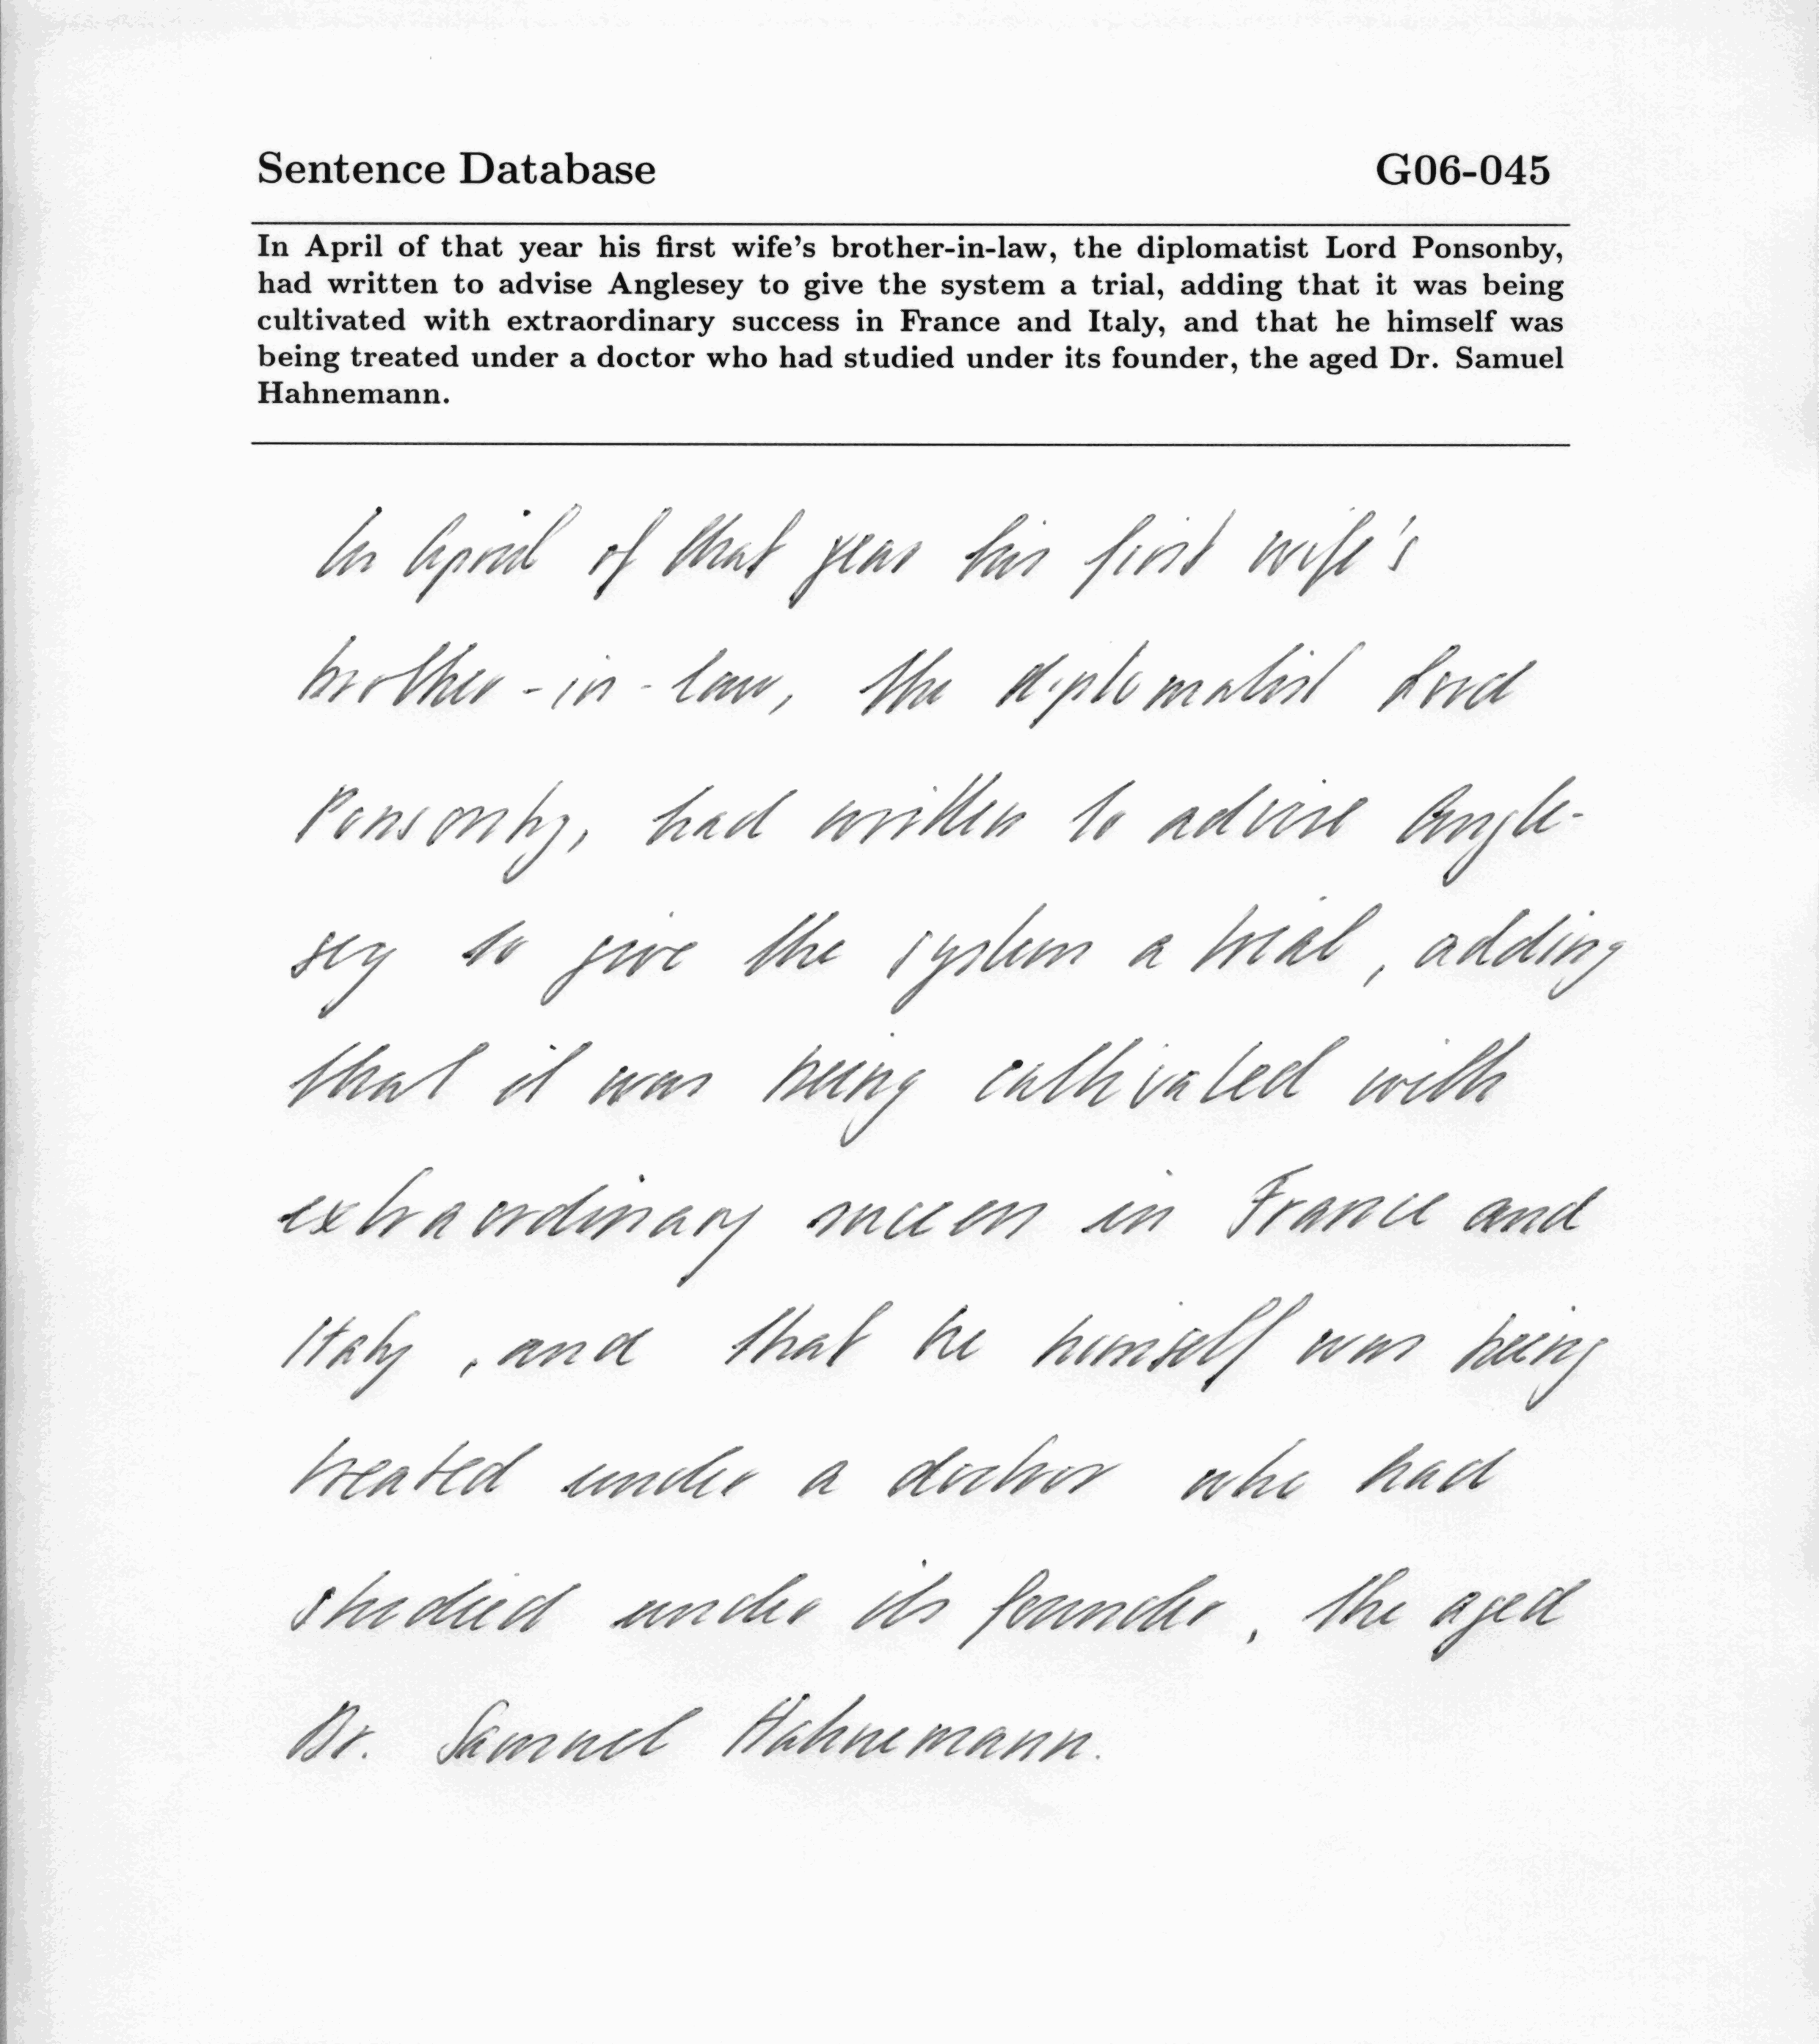 Sentence Database G06-045
In April of that year his first wife's brother-in-law, the diplomatist Lord Ponsonby,
had written to advise Anglesey to give the system a trial, adding that it was being
cultivated with extraordinary success in France and Italy, and that he himself was
being treated under a doctor who had studied under its founder, the aged Dr. Samuel
Hahnemann.
In April of that year his first wife's
brother-in-law, the diplomatist Lord
Ponsonby, had written to advise Angle-
sey to give the system a trial, adding
that it was being cultivated with
extraordinary success in France and
Italy, and that he himself was being
treated under a doctor who had
studied under its founder, the aged
Dr. Samuel Hahnemann.